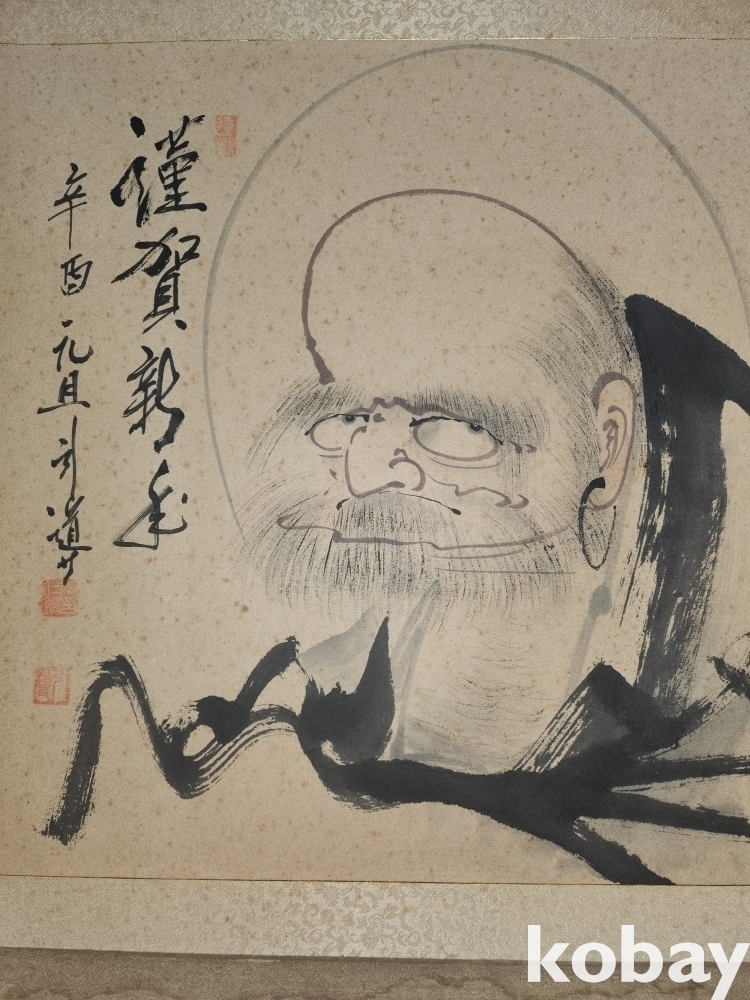 謹賀新年
辛酉元旦
kobay